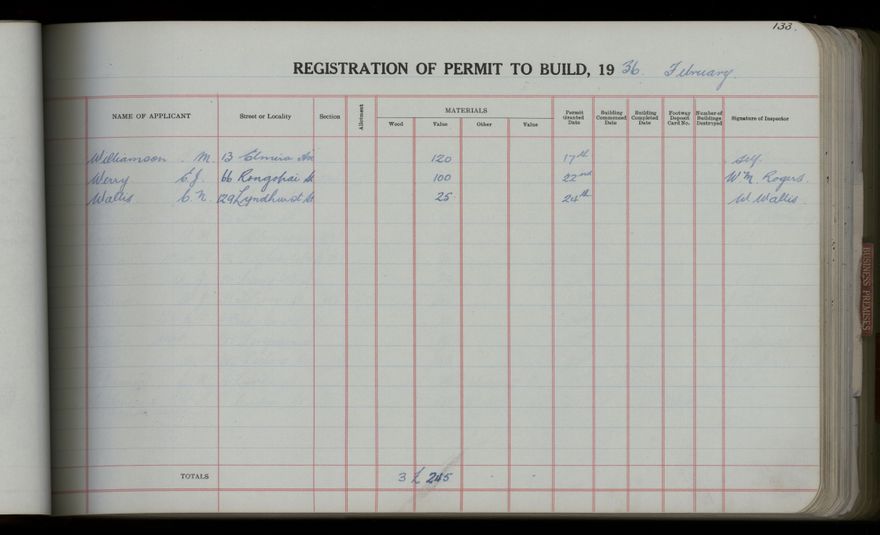 133.
REGISTRATION OF PERMIT TO BUILD, 19 36. February.
NAME OF APPLICANT Street or Locality Section Allotment MATERIALS Wood Value Other Value Permit Granted Date Building Commenced Date Building Completed Date Footway Deposit Card No. Number of Buildings Destroyed Signature of Inspector
Williamson . M. 13 Elmira Ave 120 17th Self.
Werry E. J. 66 Rongotai St. 100 22nd W. M. Rogers.
Wallis C. N. 129 Lyndhurst St 25 24th W Wallis.
TOTALS 3 £ 245 - -
BUSINESS PREMISES